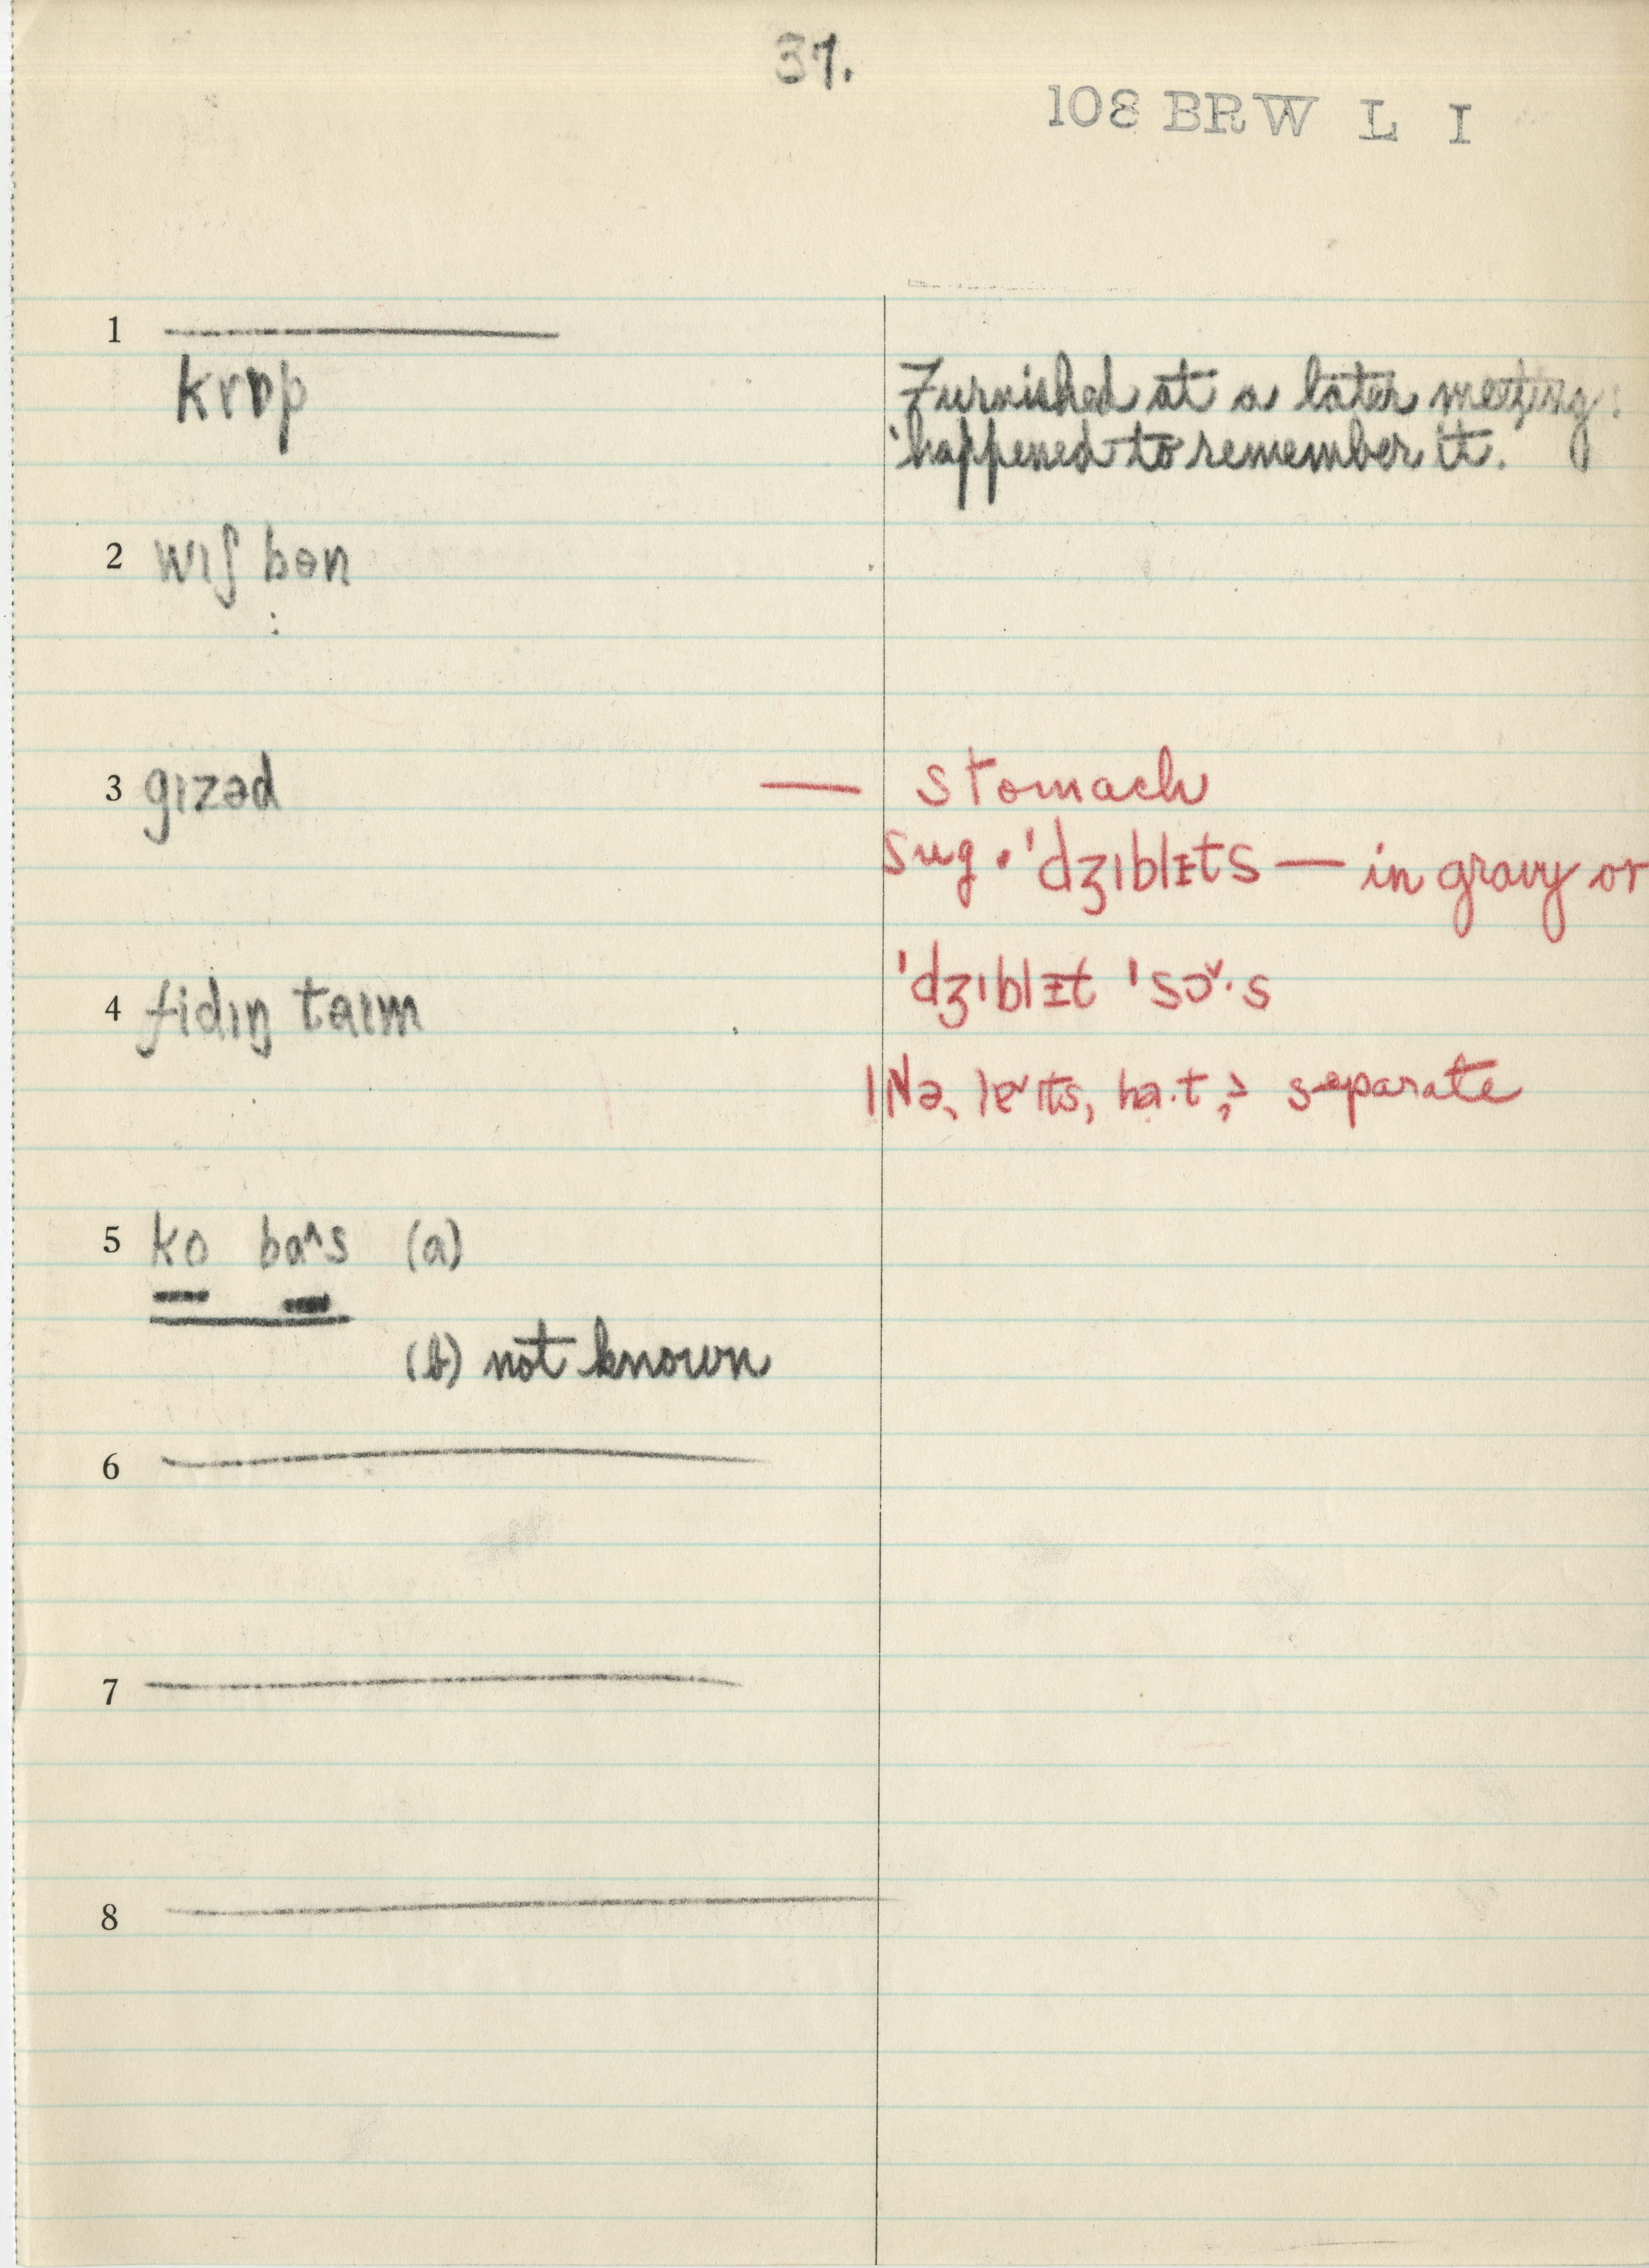 37.
108 BRW L I
1
krɒp
Furnished at a later meeting:
happened to remember it.
2 wɪʃ bɵn
3 gɪzəd — stomach
sug. 'dʒɪblɪts — in gravy or
4 fidɪŋ taɪm
'dʒɪblɪt 'sɔ˅·s
separate
5 ko ba^s (a)
(b) not known
6
7
8